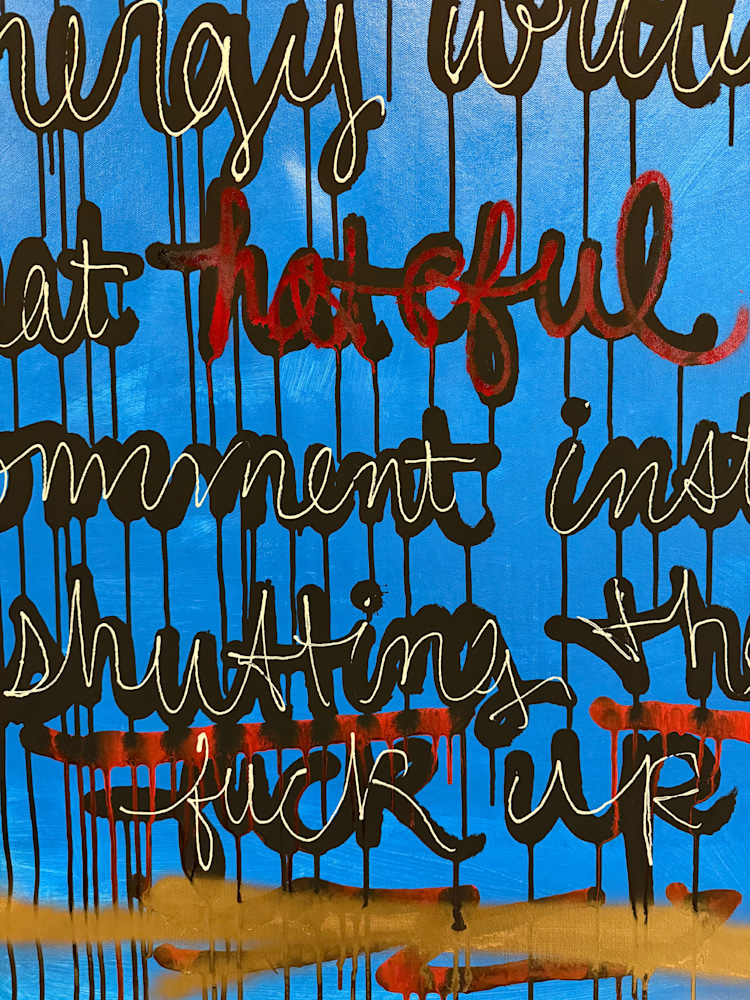 nergy writi
at hateful
omment inst
shutting the
fuck up